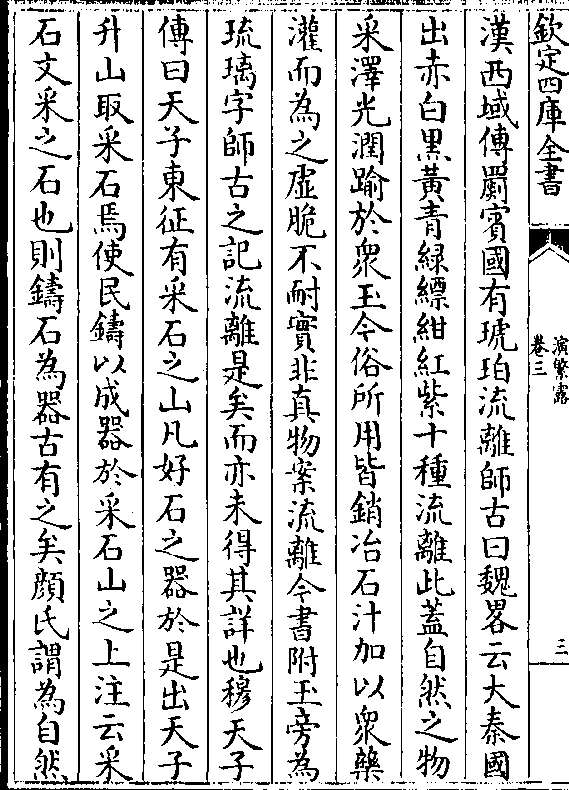 欽定四庫全書
演繁露
卷三
三
漢西域傳罽賓國有琥珀流離師古曰魏畧云大秦國
出赤白黒黃青緑縹紺紅紫十種流離此蓋自然之物
采澤光潤踰於衆玉今俗所用皆銷冶石汁加以衆藥
灌而為之虛脆不耐實非真物案流離今書附玉旁為
琉璃字師古之記流離是矣而亦未得其詳也穆天子
傳曰天子東征有采石之山凡好石之器於是出天子
升山取采石焉使民鑄以成器於采石山之上注云采
石文采之石也則鑄石為器古有之矣顔氏謂為自然